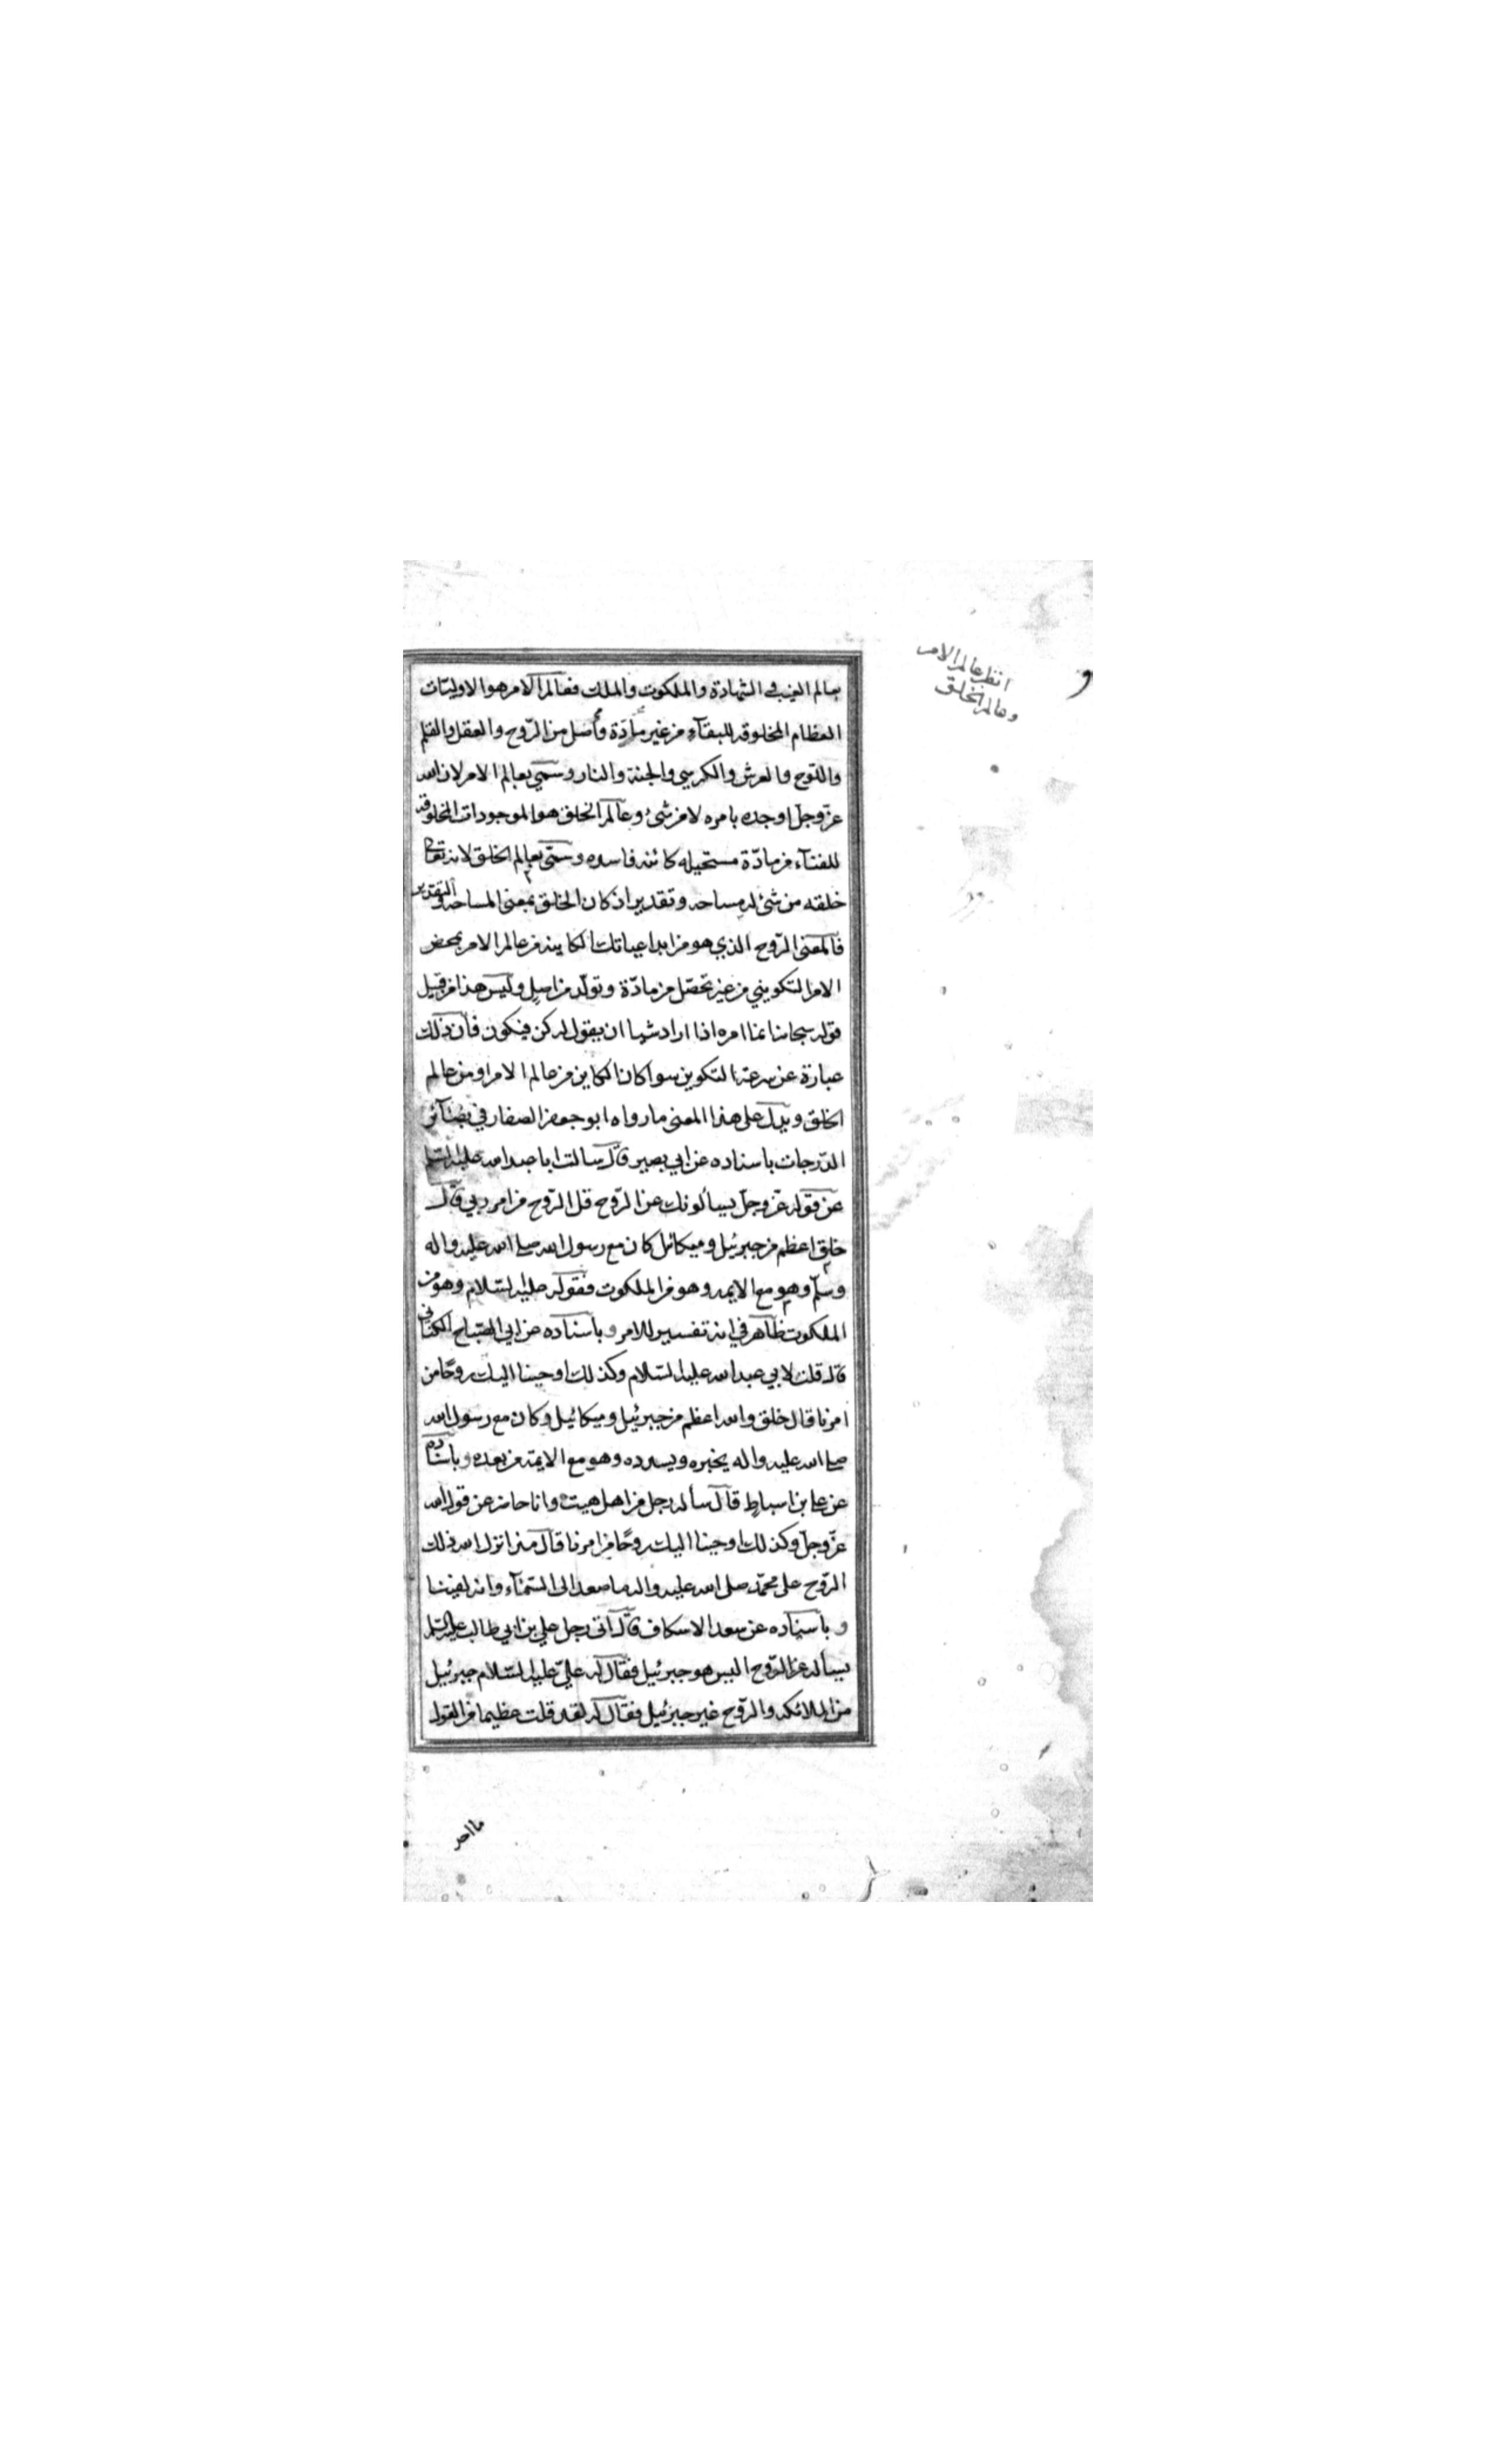 انظر عالم الامر
وعالم الخلق
بعالم الغيب في الشهادة والملكوت والملك فعالم الامر هو الاوليات
العظام المخلوقه للبقآء من غير مادة واصل من الرّوح والعقل والقلم
واللّوح والعرش والكرسي والجنة والنار وسمّي بعالم الامر لان الله
عزّ وجلّ اوجده بامره لا من شئ وعالم الخلق هو الموجودات المخلوقة
للفنآء من مادّة مستحيله كائنه فاسده وسمّى بعالم الخلق لانه تعالى
خلقه من شئ له مساحه وتقدير اذ كان الخلق بمعنى المساحه والتقدير
فالمعنى الرّوح الذي هو من ابداعياتك الكاينه من عالم الامر بمحض
الامر التكويني من غير تحصّل من مادّة وتولّد من اصلٍ وليس هذا من قبيل
قوله سبحانه انما امره اذا اراد شيا ان يقول له كن فيكون فان ذلك
عبارة عن سرعة التكوين سوا كان الكاين من عالم الامر او من عالم
الخلق ويدل على هذا المعنى ما رواه ابو جعفر الصفار في بصآئر
الدّرجات باسناده عن ابي بصير قال سالت ابا عبد الله عليه السلم
عن قوله عزّ وجلّ يسألونك عن الرّوح قل الرّوح من امر ربي قال
خلق اعظم من جبرئيل وميكائل كان مع رسول الله صلى الله عليه واله
وسلّم وهو مع الايمه وهو من الملكوت فقوله عليه السّلام وهو من
الملكوت ظاهر في انه تفسير للامر وباسناده عن ابي الصّباح الكناني
قال قلت لابي عبد الله عليه السّلام وكذلك اوحينا اليك روحًا من
امرنا قال خلق والله اعظم من جبرئيل وميكائيل وكان مع رسول الله
صلى الله عليه واله يخبره ويسدده وهو مع الايمة من بعده وباسناده
عن علي بن اسباطٍ قال سأله رجل من اهل هيت وانا حاضر عن قول الله
عزّ وجلّ وكذلك اوحينا اليك روحًا من امرنا قال منذ انزل الله ذلك
الرّوح على محمّد صلى الله عليه واله ما صعد الى السّمآء وانه لفيننا
وباسناده عن سعد الاسكاف قال اتى رجل علي بن ابي طالب عليه السلم
يسأله عن الرّوح اليس هو جبرئيل فقال له عليّ عليه السّلام جبرئيل
من الملائكه والرّوح غير جبرئيل فقال له لقد قلت عظيما من القول
ما احد